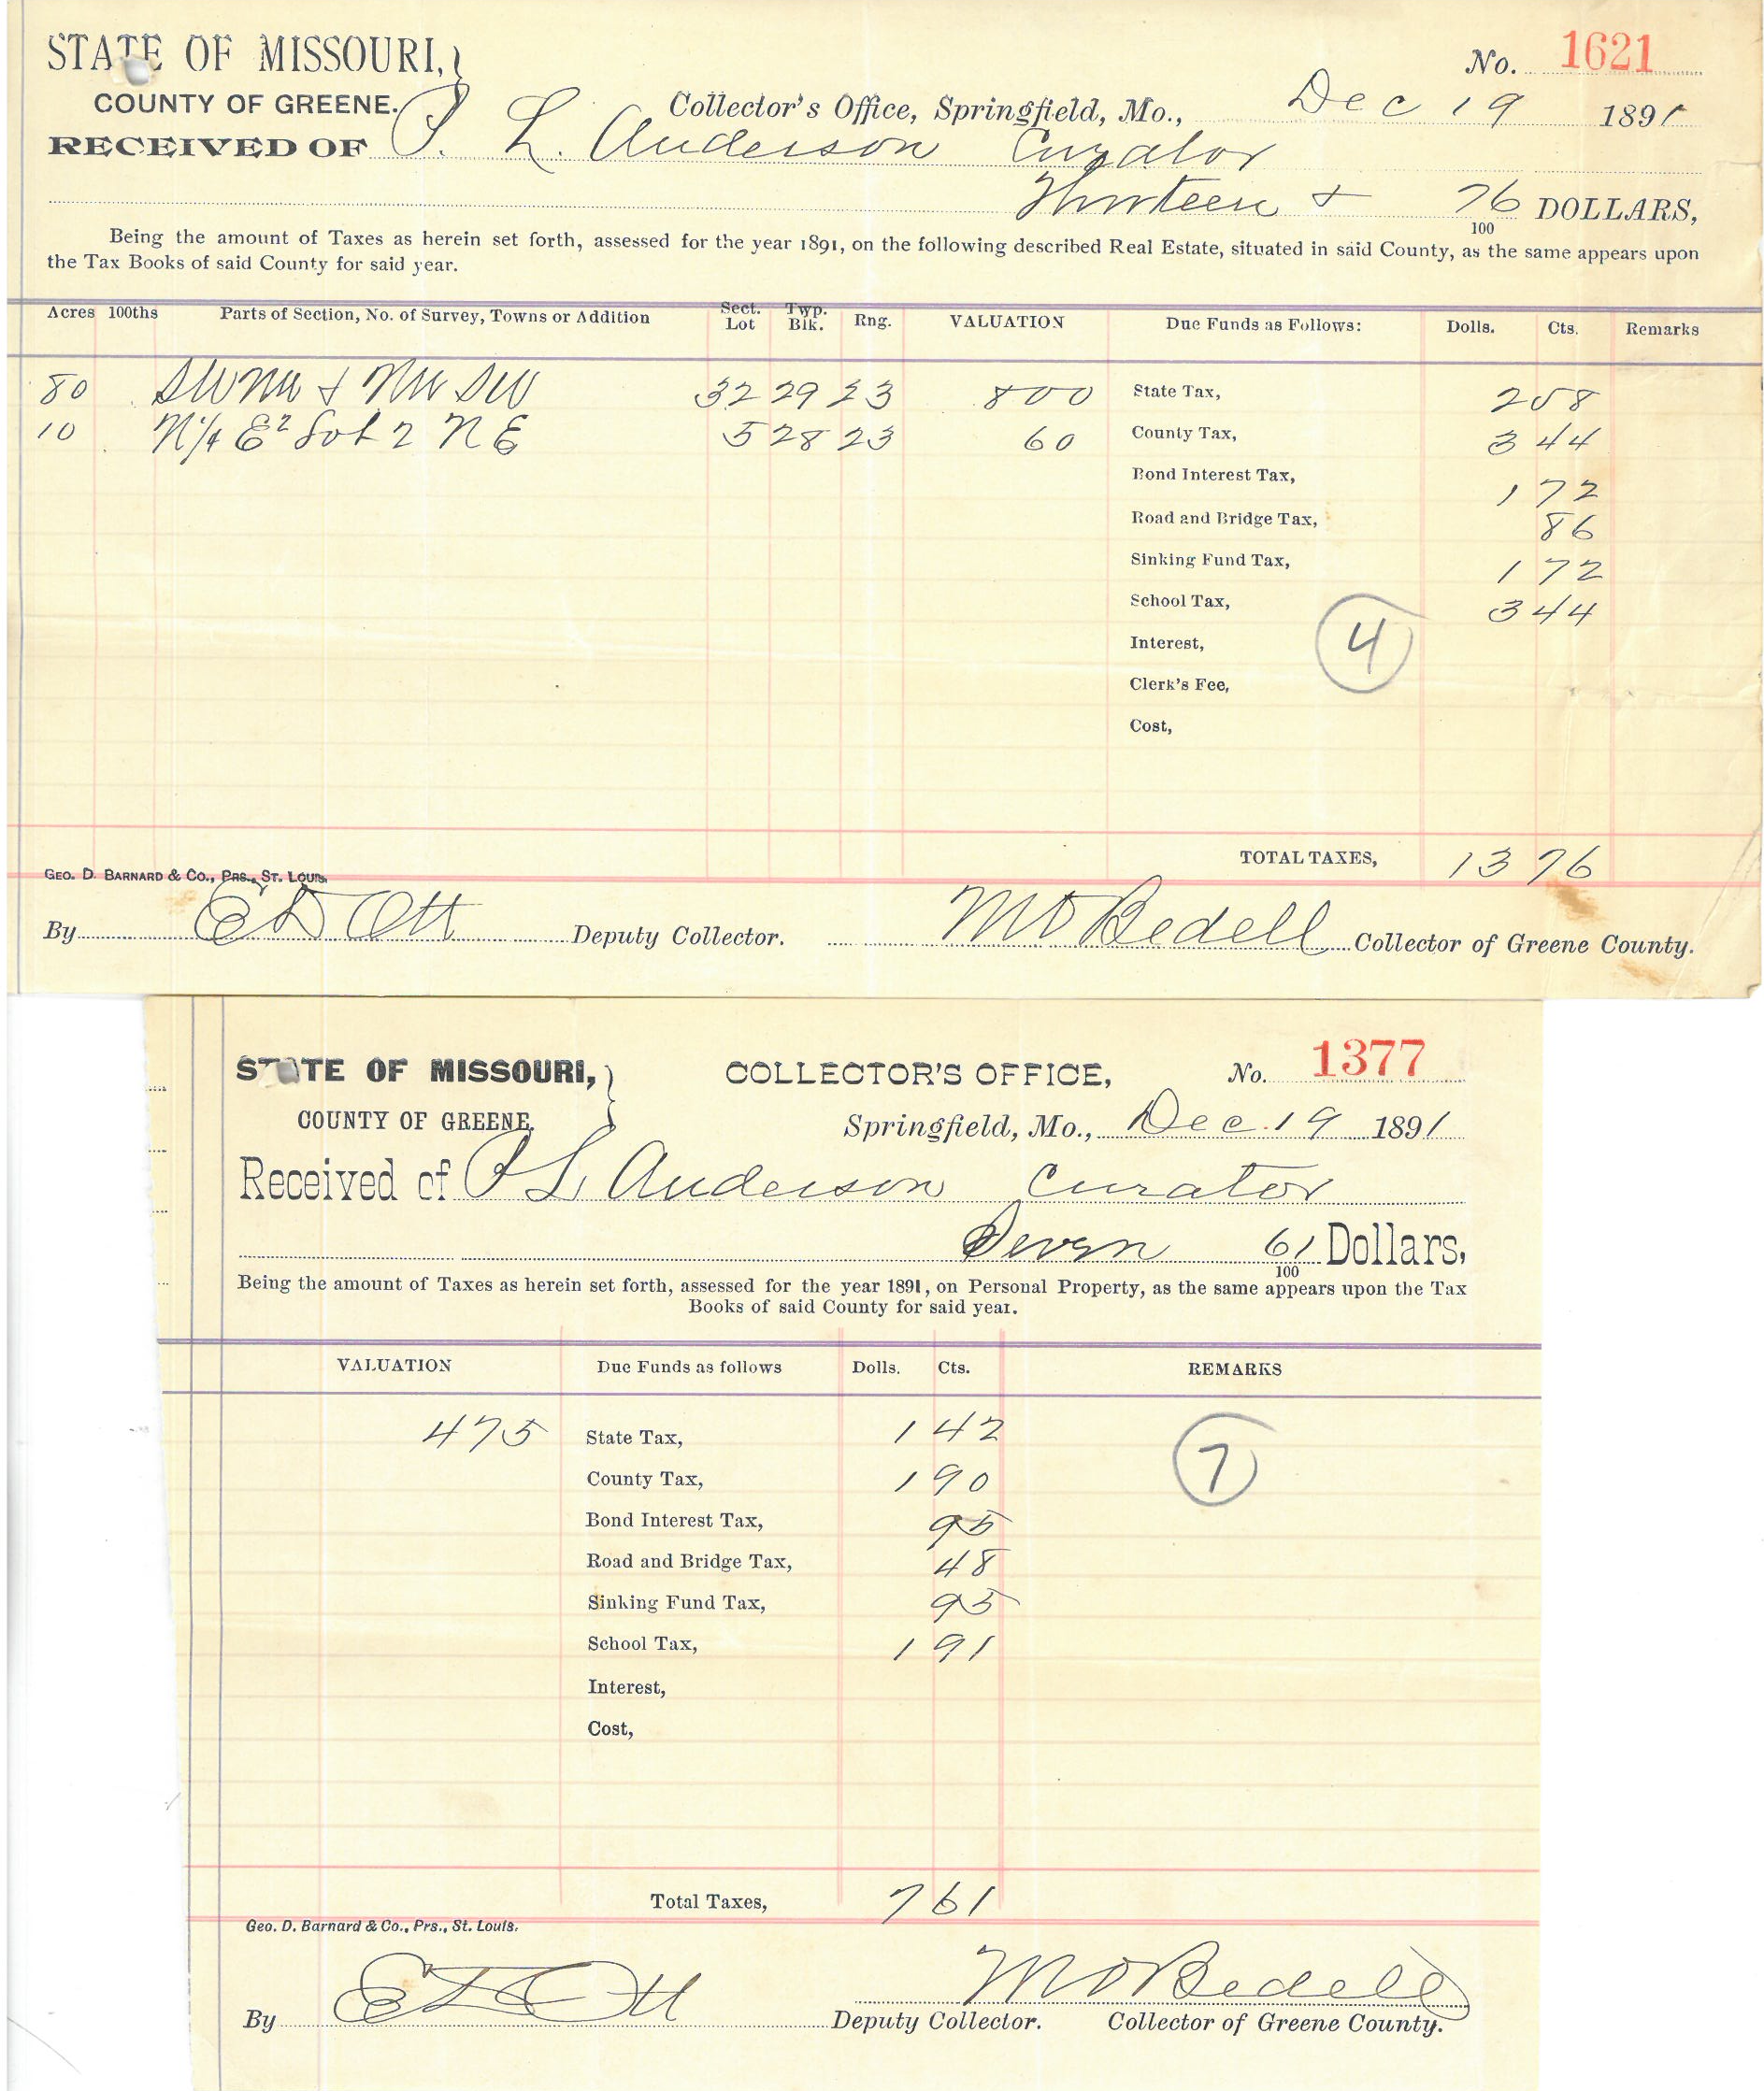 STATE OF MISSOURI,
No. 1621
COUNTY OF GREENE.
Collector's Office, Springfield, Mo., Dec 19 1891
RECEIVED OF P. L. Anderson Curator
Thirteen & 76/100 DOLLARS,
Being the amount of Taxes as herein set forth, assessed for the year 1891, on the following described Real Estate, situated in said County, as the same appears upon
the Tax Books of said County for said year.
Acres 100ths Parts of Section, No. of Survey, Towns or Addition Sect. Lot Twp. Blk. Rng. VALUATION Due Funds as Follows: Dolls. Cts. Remarks
80 SW NW & NW SW 32 29 23 800 State Tax, 2 58
10 N/4 E2 Lot 2 NE 5 28 23 60 County Tax, 3 44
Bond Interest Tax, 1 72
Road and Bridge Tax, 86
Sinking Fund Tax, 1 72
School Tax, 3 44
4
Interest,
Clerk's Fee,
Cost,
TOTAL TAXES, 13 76
GEO. D. BARNARD & CO., PRS., ST. LOUIS.
By E D Ott Deputy Collector. M O Bedell Collector of Greene County.
STATE OF MISSOURI, COLLECTOR'S OFFICE, No. 1377
COUNTY OF GREENE, Springfield, Mo., Dec. 19 1891
Received of P L Anderson Curator
Seven 61/100 Dollars,
Being the amount of Taxes as herein set forth, assessed for the year 1891, on Personal Property, as the same appears upon the Tax
Books of said County for said year.
VALUATION Due Funds as follows Dolls. Cts. REMARKS
475 State Tax, 1 42
7
County Tax, 1 90
Bond Interest Tax, 95
Road and Bridge Tax, 48
Sinking Fund Tax, 95
School Tax, 1 91
Interest,
Cost,
Total Taxes, 7 61
Geo. D. Barnard & Co., Prs., St. Louis.
By E D Ott Deputy Collector. M O Bedell Collector of Greene County.